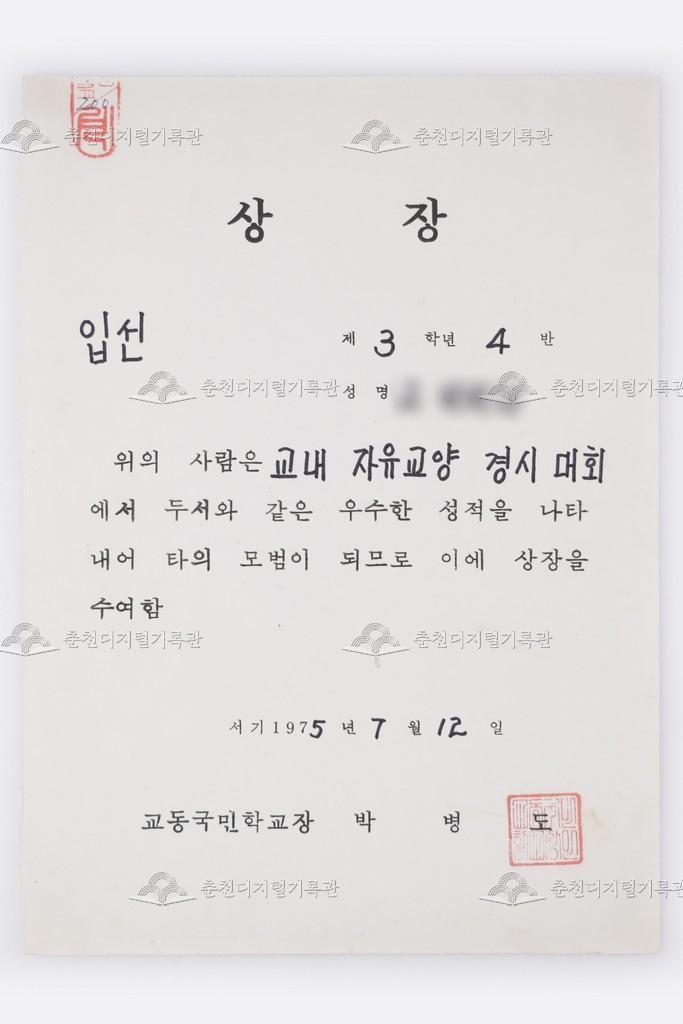 200
춘천디지털기록관 춘천디지털기록관
상 장
입선
제 3 학년 4 반
춘천디지털기록관 춘천디지털기록관
성 명
위의 사람은 교내 자유교양 경시 대회
에서 두서와 같은 우수한 성적을 나타
내어 타의 모범이 되므로 이에 상장을
수여함
춘천디지털기록관 춘천디지털기록관
서기 1975 년 7 월 12 일
교동국민학교장 박 병 도
춘천디지털기록관 춘천디지털기록관